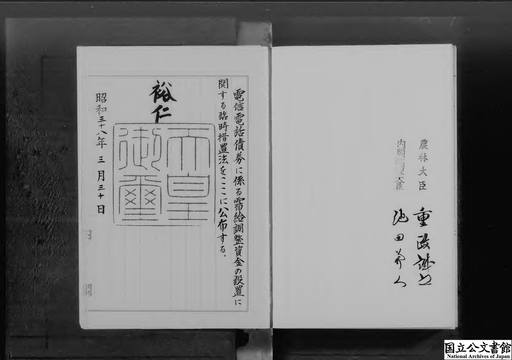 電信電話債券に係る需給調整資金の設置に
関する臨時措置法をここに公布する。
裕仁
天皇
御璽
昭和三十八年三月三十日
農林大臣 重政誠之
内閣総理大臣 池田勇人
国立公文書館
National Archives of Japan